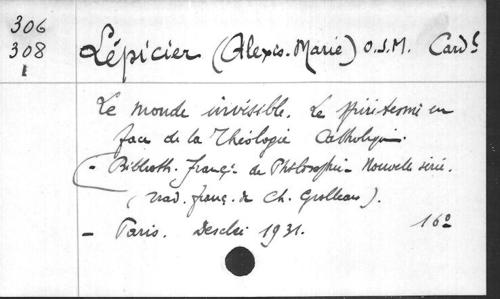 306
308
1
Lépicier (Alexis-Marie) O.S.M. Cardl
Le monde invisible. Le spiritisme en
face de la Théologie Catholique.
(- Biblioth. franç. de Philosophie - Nouvelle série.
(Trad. franç. de Ch. Grolleau).
- Paris. Desclée 1931. 16º